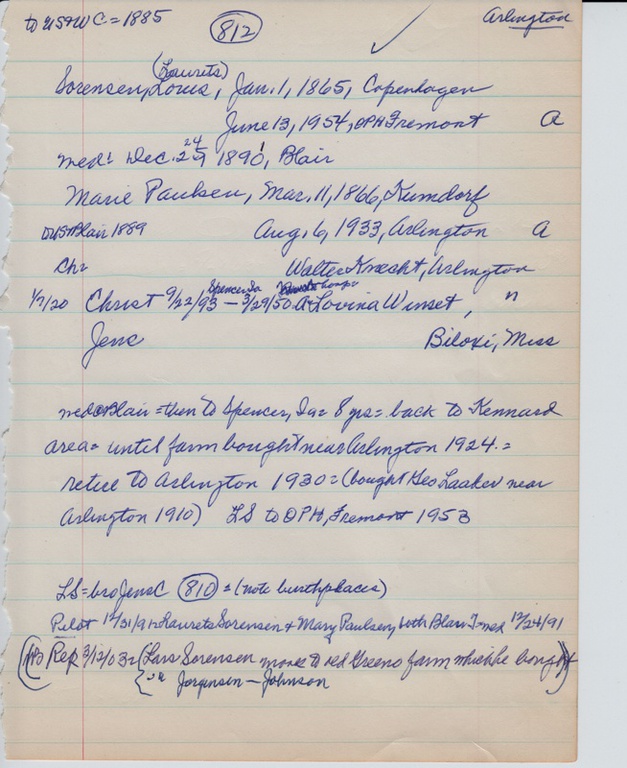 to US+WC = 1885 812 Arlington
(Laurets)
Sorensen, Louis, Jan. 1, 1865, Copenhagen
June 13, 1954, OPH Fremont A
med: Dec. 24 25 1890, Blair
Marie Paulsen, Mar. 11, 1866, Kumdorf
to US+Blair 1889 Aug. 6, 1933, Arlington A
Chr Walter Knecht, Arlington
Spencer Ia
1/7/20 Christ 9/22/93 – 3/29/50 A Lovina Winset, "
Jens Biloxi, Miss
med @ Blair = then to Spencer, Ia = 8 yrs = back to Kennard
area = until farm bought near Arlington 1924. =
retire to Arlington 1930 = (bought Geo Laaker near
Arlington 1910) LS to OPH, Fremont 1953
LS = bro Jens C 810 = (note birthplaces)
Pilot 12/31/91 = Laurets Sorensen + Mary Paulsen, both Blair med 12/24/91
Rep 3/13/03 = (Lars Sorensen moves to Greeno farm which he bought)
Jorgensen – Johnson